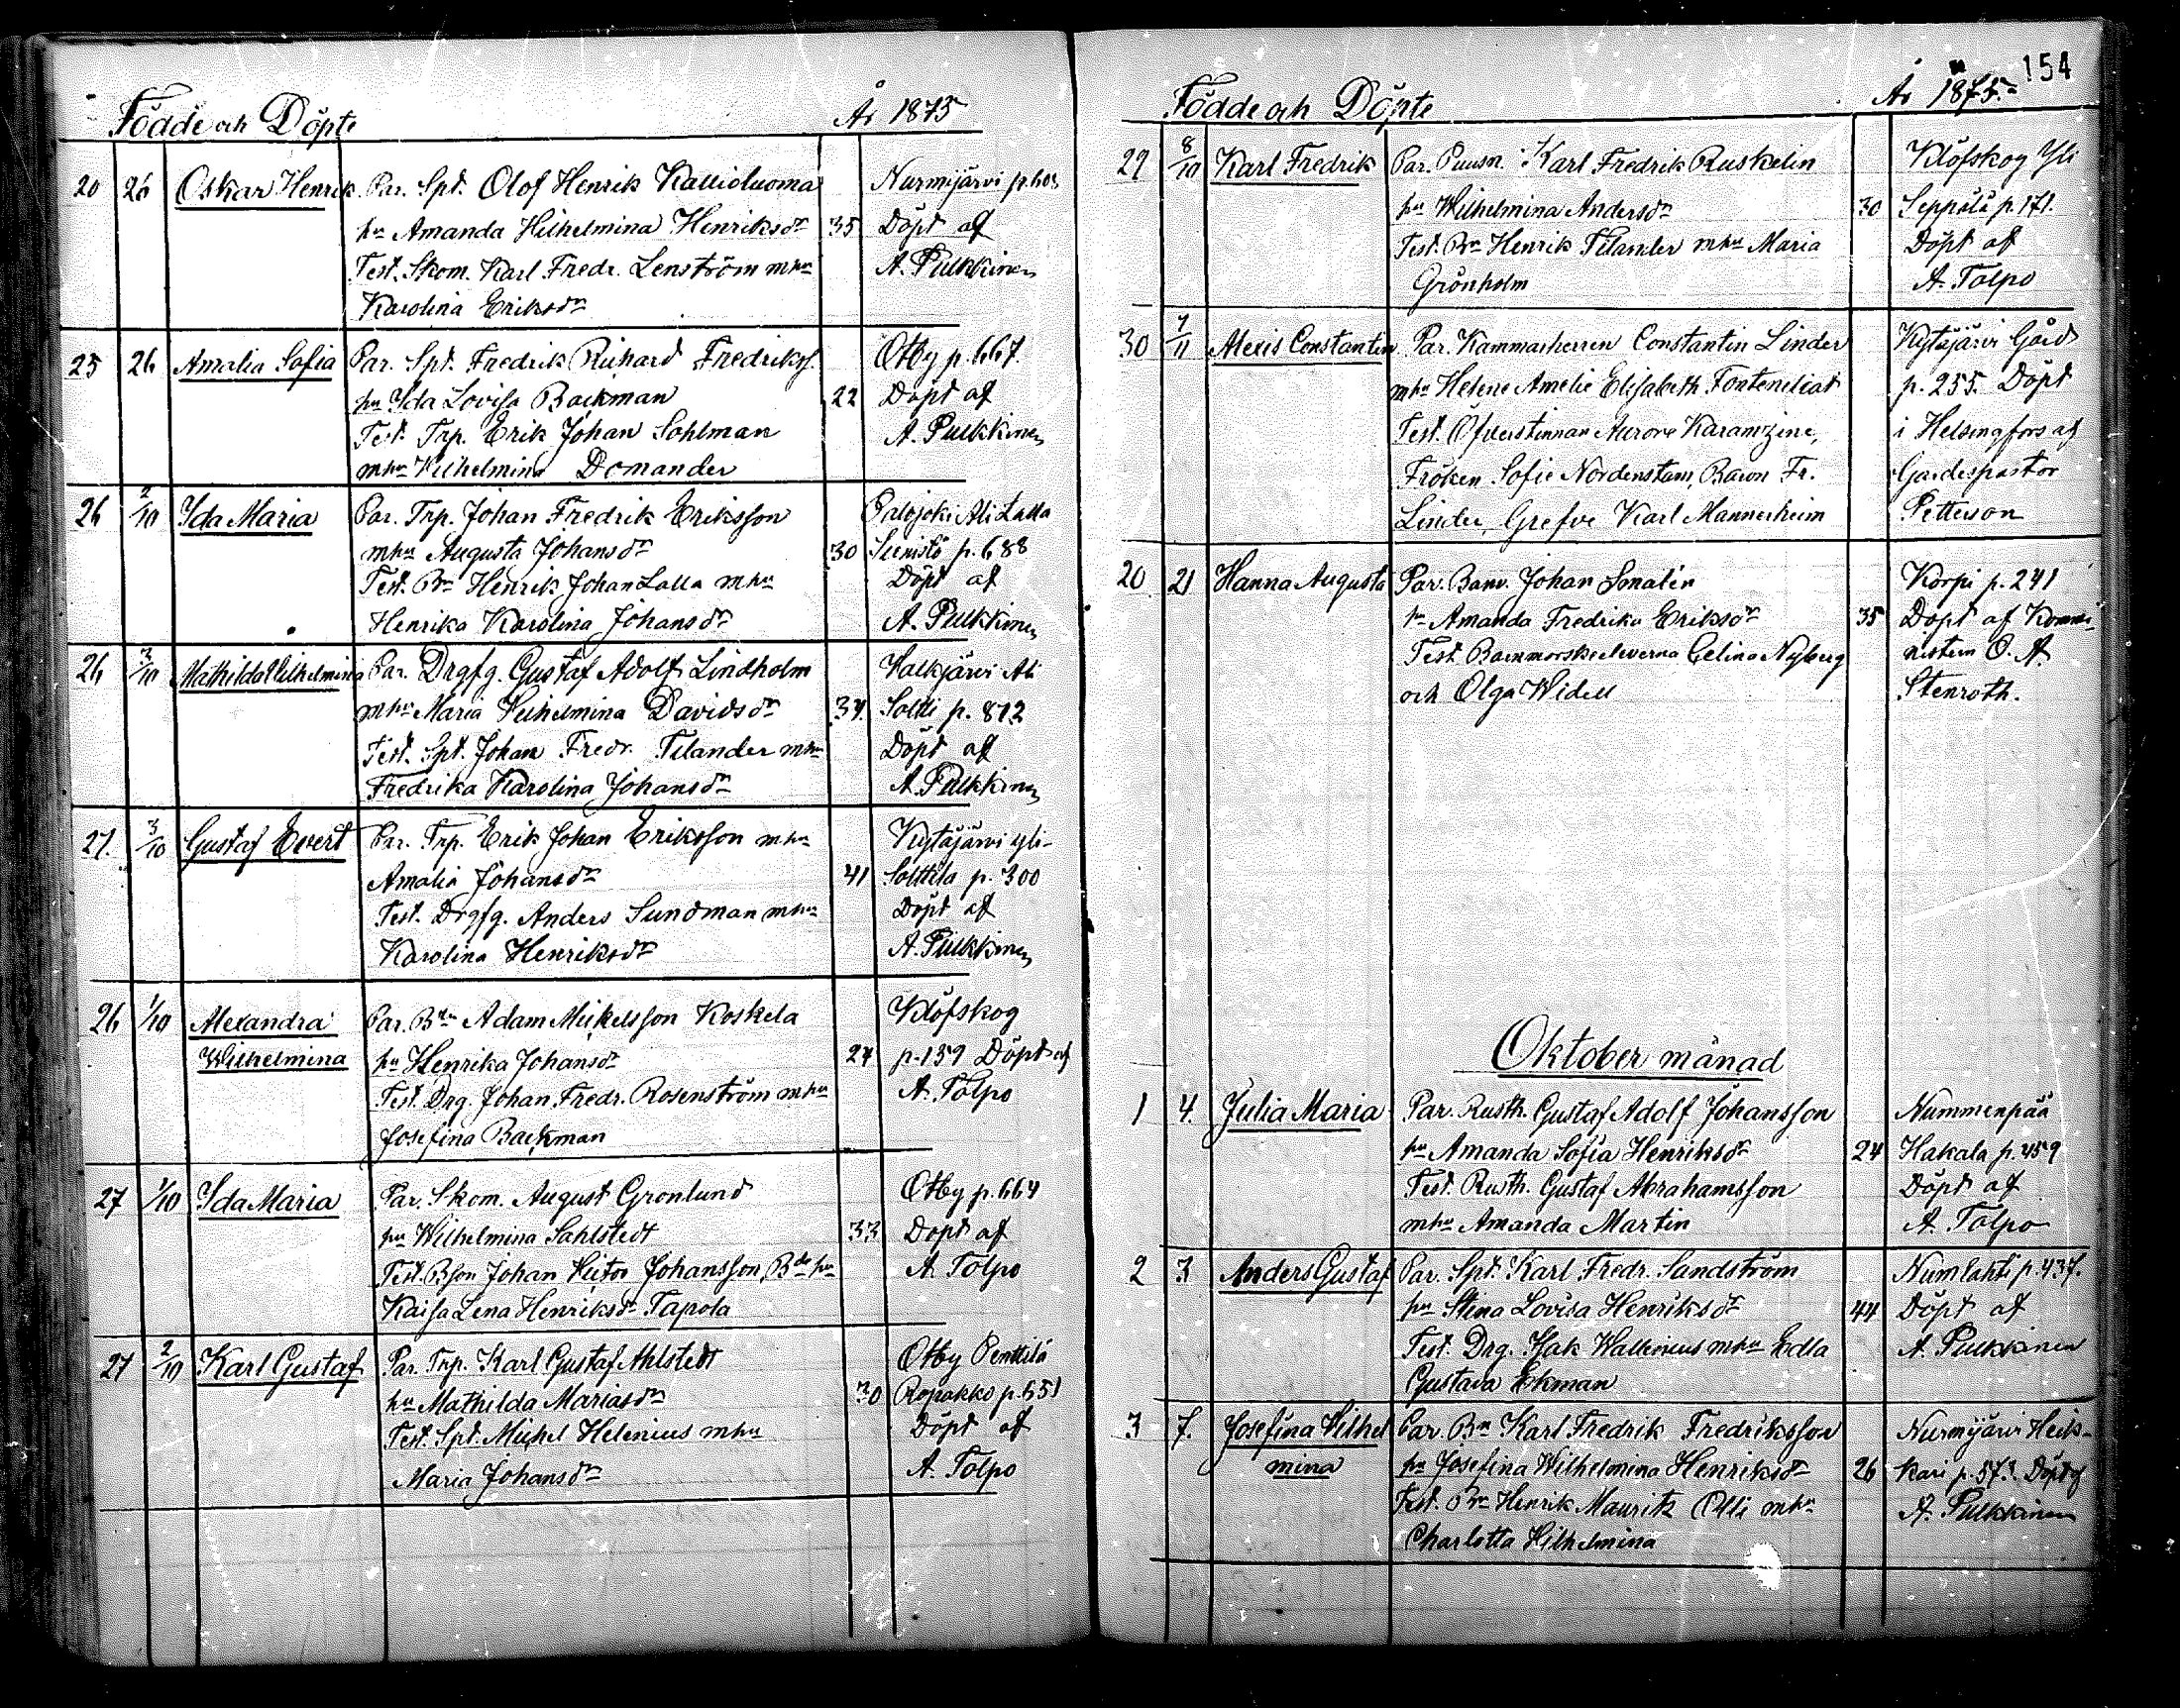 Födde och Döpte År 1875
20 26 Oskar Henrik Par. Spt. Olof Henrik Kallioluoma Nurmijärvi p. 603
hu Amanda Wilhelmina Henriksdr 35 Döpt af
Test. Skom. Karl Fredr. Lenström mhu A. Pulkkinen
Karolina Eriksdr
25 26 Amalia Sofia Par. Spt. Fredrik Richard Fredrikss. Otby p. 667.
hu Ida Lovisa Backman 22 Döpt af
Test. Trp. Erik Johan Sohlman A. Pulkkinen
mhu Wilhelmina Domander
26 2/10 Ida Maria Par. Trp. Johan Fredrik Eriksson Palojoki Ali Lalla
mhu Augusta Johansdr 30 Sienistö p. 688
Test. Bn Henrik Johan Lalla mhu Döpt af
Henrika Karolina Johansdr A. Pulkkinen
26 3/10 Mathilda Wilhelmina Par. Drgfg. Gustaf Adolf Lindholm Valkjärvi Ali
mhu Maria Wilhelmina Davidsdr 37. Soltti p. 812
Test. Spt. Johan Fredr. Telander mhu Döpt af
Fredrika Karolina Johansdr A. Pulkkinen
27. 3/10 Gustaf Evert Par. Trp. Erik Johan Eriksson mhu Kytäjärvi Yli-
Amalia Johansdr 41 Solttila p. 300
Test. Drgfg. Anders Sundman mhu Döpt af
Karolina Henriksdr A. Pulkkinen
26 1/10 Alexandra Par. Bdn Adam Mickelsson Koskela Klöfskog
Wilhelmina hu Henrika Johansdr 27 p. 159 Döpt af
Test. Drg. Johan Fredr. Rosenström mhu A. Tolpo
Josefina Backman
27 1/10 Ida Maria Par. Skom. August Grönlund Otby p. 664
hu Wilhelmina Sahlstedt 33 Döpt af
Test. Bson Johan Victor Johansson, Bde hu A. Tolpo
Kaisa Lena Henriksdr Tapola
27 2/10 Karl Gustaf Par. Trp. Karl Gustaf Ahlstedt Otby Penttilä
hu Mathilda Mariasdr 30 Ropakko p. 651
Test. Spt. Michel Helenius mhu Döpt af
Maria Johansdr A. Tolpo
154
Födde och Döpte År 1875.
29 8/10 Karl Fredrik Par. Puusn. Karl Fredrik Ruskelin Klöfskog Yli
hu Wilhelmina Andersdr 30 Seppälä p. 171.
Test. Bn Henrik Telander mhu Maria Döpt af
Grönholm A. Tolpo
30 7/11 Alexis Constantin Par. Kammarherren Constantin Linder Kytäjärvi Gård
mhu Helene Amelie Elisabeth Fonteneliat p. 255. Döpt
Test. Öfverstinnan Aurore Karamzine, i Helsingfors af
Fröken Sofie Nordenstam, Baron Fr. Gardespastor
Linder, Grefve Karl Mannerheim Petterson
20 21 Hanna Augusta Par. Banv. Johan Smalén Korpi p. 241
hu Amanda Fredrika Eriksdr 35 Döpt af Kommi-
Test. Barnmorskeeleverna Celina Nyberg nistern O. A.
och Olga Widell Stenroth.
Oktober månad
1 4. Julia Maria Par. Rusth. Gustaf Adolf Johansson Nummenpää
hu Amanda Sofia Henriksdr 24 Hakala p. 459
Test. Rusth. Gustaf Abrahamsson Döpt af
mhu Amanda Martin A. Tolpo
2 3 Anders Gustaf Par. Spt. Karl Fredr. Sandström Numlahti p. 437.
hu Stina Lovisa Henriksdr 44 Döpt af
Test. Drg. Isak Wallenius mhu Edla A. Pulkkinen
Gustava Ekman
3 7. Josefina Wilhel Par. Bn Karl Fredrik Fredriksson Nurmijärvi Heik-
mina hu Josefina Wilhelmina Henriksdr 26 kari p. 573. Döpt af
Test. Bn Henrik Mauritz Olli mhu A. Pulkkinen
Charlotta Wilhelmina